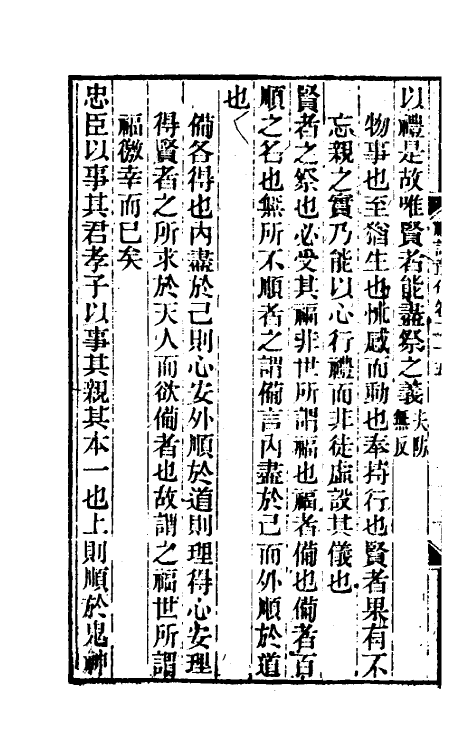 以禮是故唯賢者能盡祭之義
物事也至猶生也怵感而動也奉持行也賢者果有不
忘親之實乃能以心行禮而非徒虛設其儀也
賢者之祭也必受其福非世所謂福也福者備也備者百
順之名也無所不順者之謂備言內盡於己而外順於道
也
備各得也內盡於己則心安外順於道則理得心安理
得賢者之所求於天人而欲備者也故謂之福世所謂
福徼幸而已矣
忠臣以事其君孝子以事其親其本一也上則順於鬼神